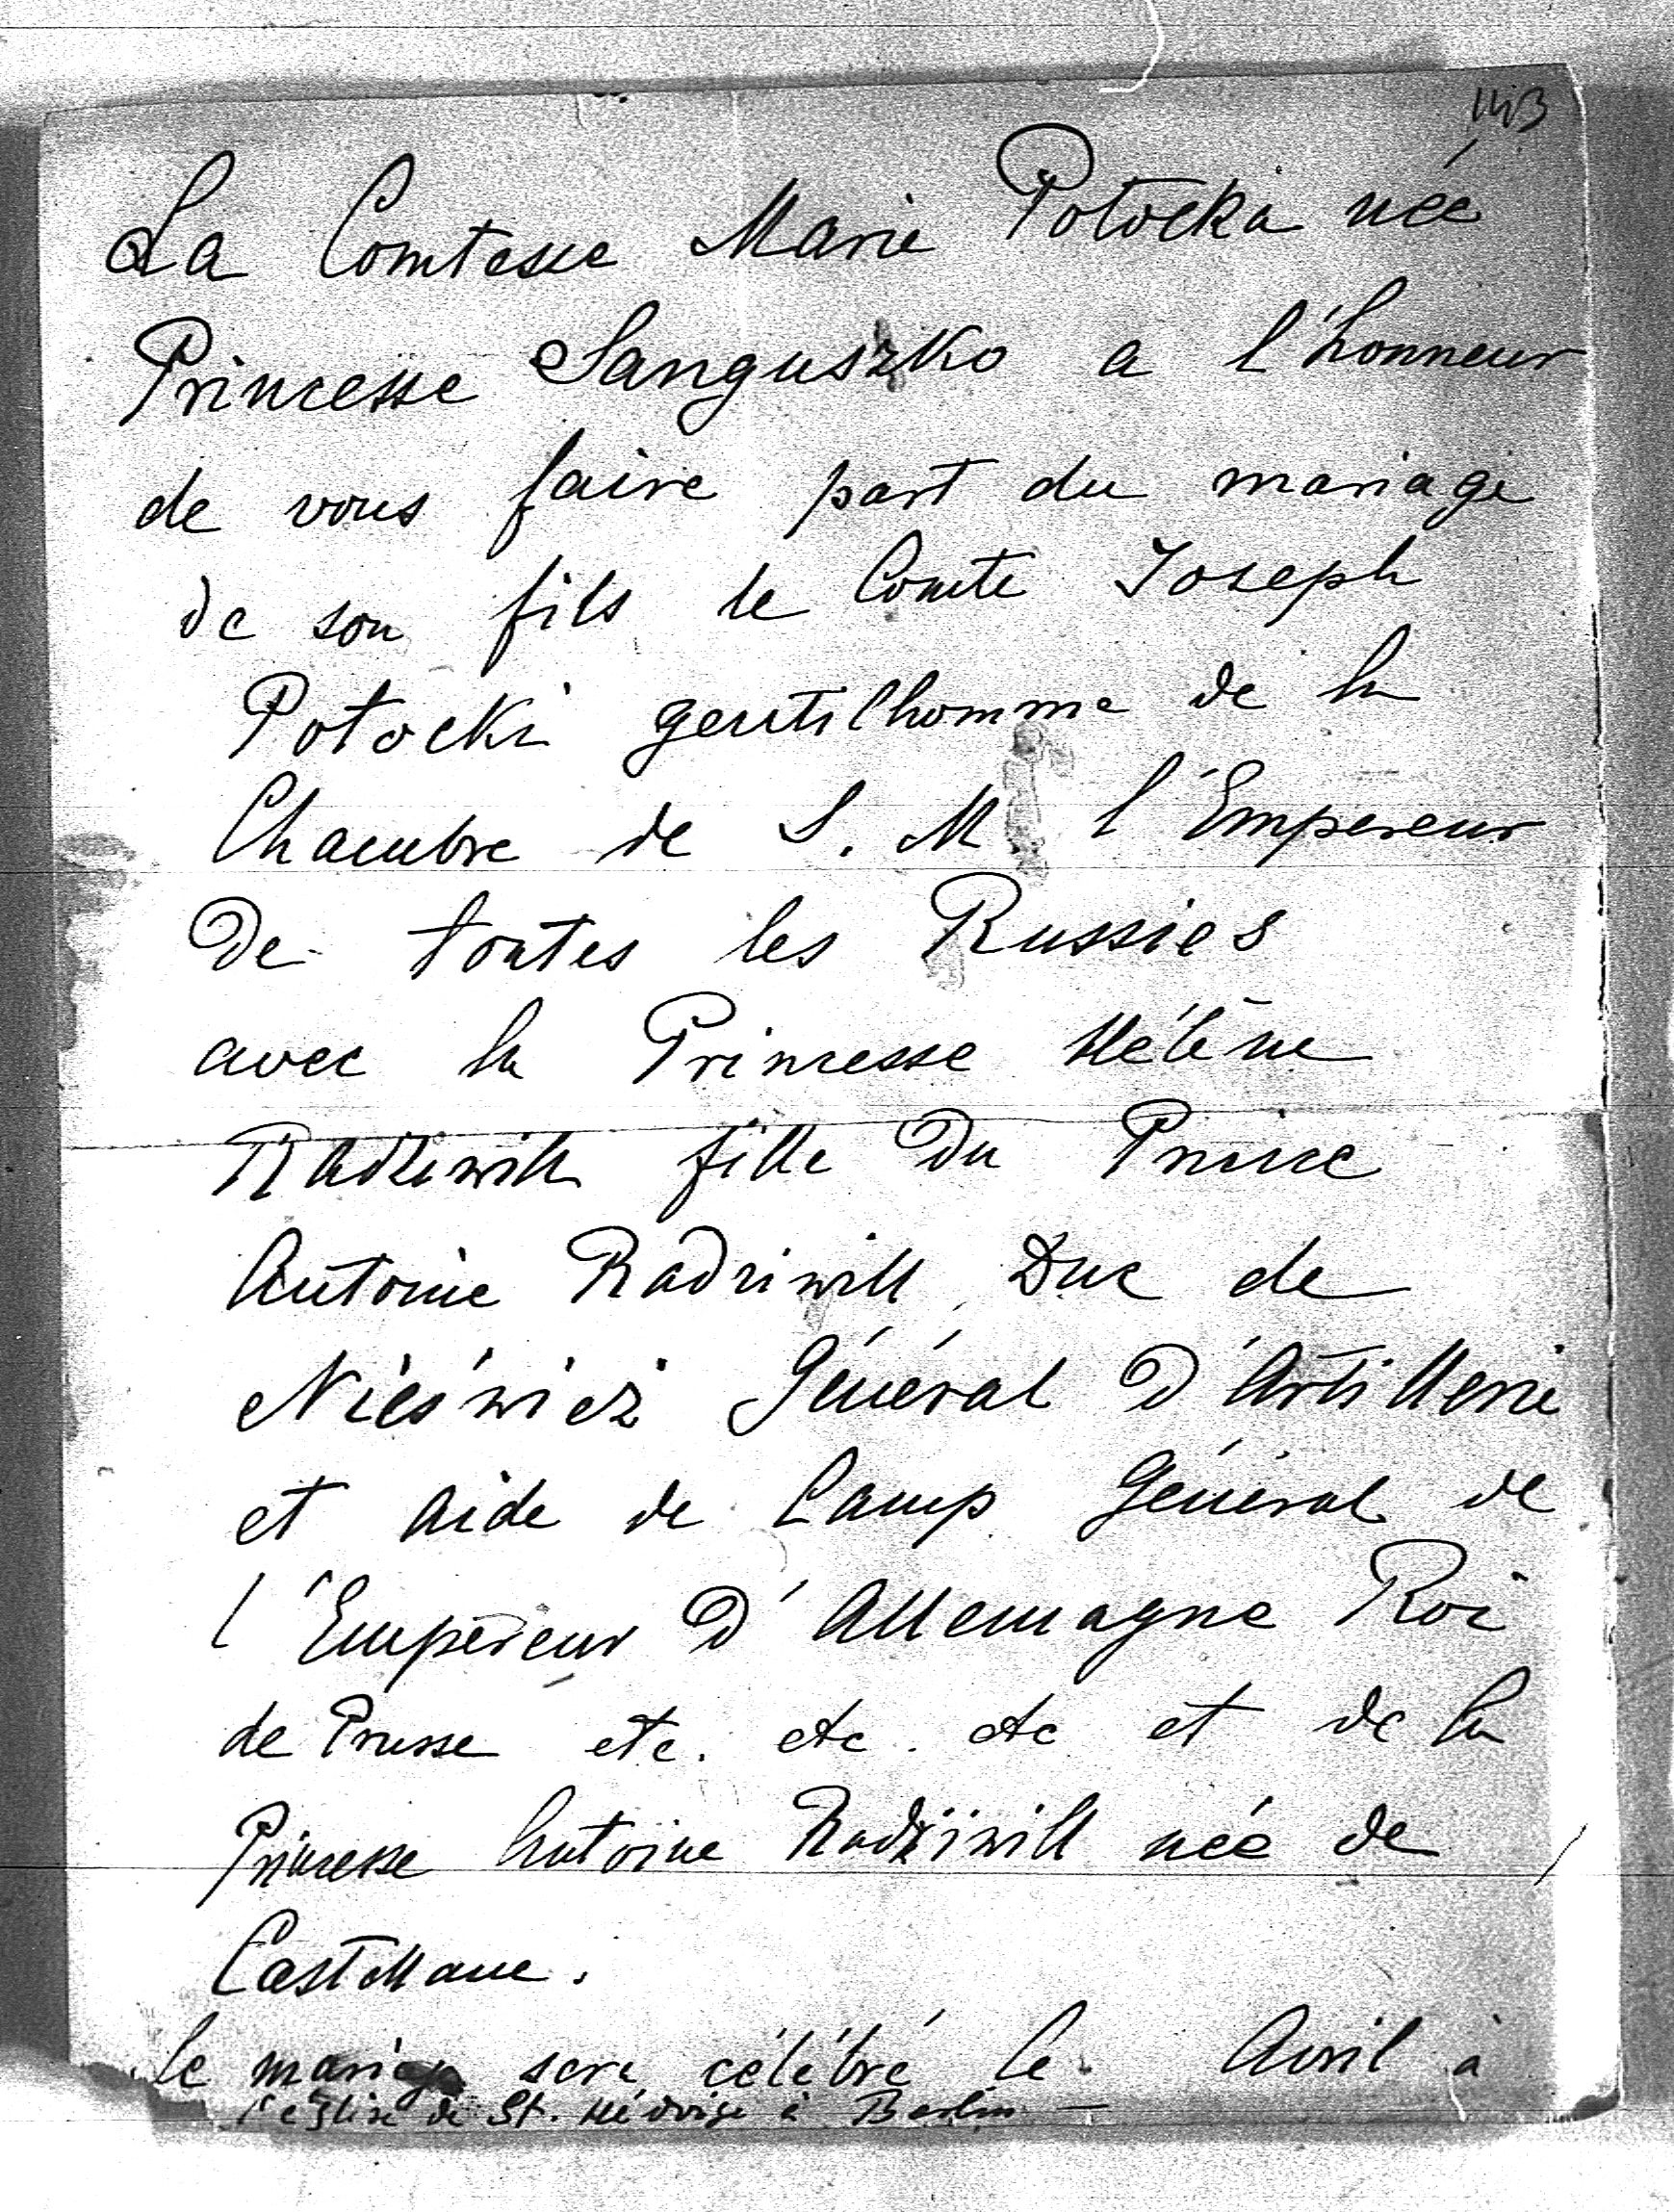 143
La Comtesse Marie Potocka née
Princesse Sanguszko a l'honneur
de vous faire part du mariage
de son fils le Comte Joseph
Potocki gentilhomme de la
Chambre de S. M l'Empereur
De toutes les Russies
avec la Princesse Hélène
Radziwill fille Du Prince
Antoine Radziwill Duc de
Nieświez Général D'Artillerie
et aide de Camp Général de
l'Empereur D'Allemagne Roi
de Prusse etc. etc. etc et de la
Princesse Antoine Radziwill née de
Castellane.
le mariage sera célébré le Avril à
l'église de St. Hédvige à Berlin —